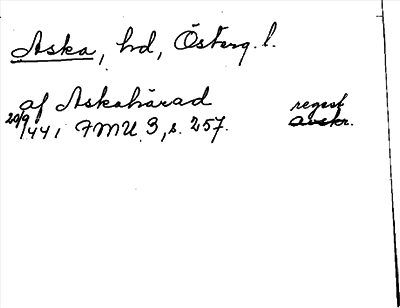 Aska, hd, Österg. l.
af Askahärad regest
20/9 1441 FMU 3, s. 257. avskr.